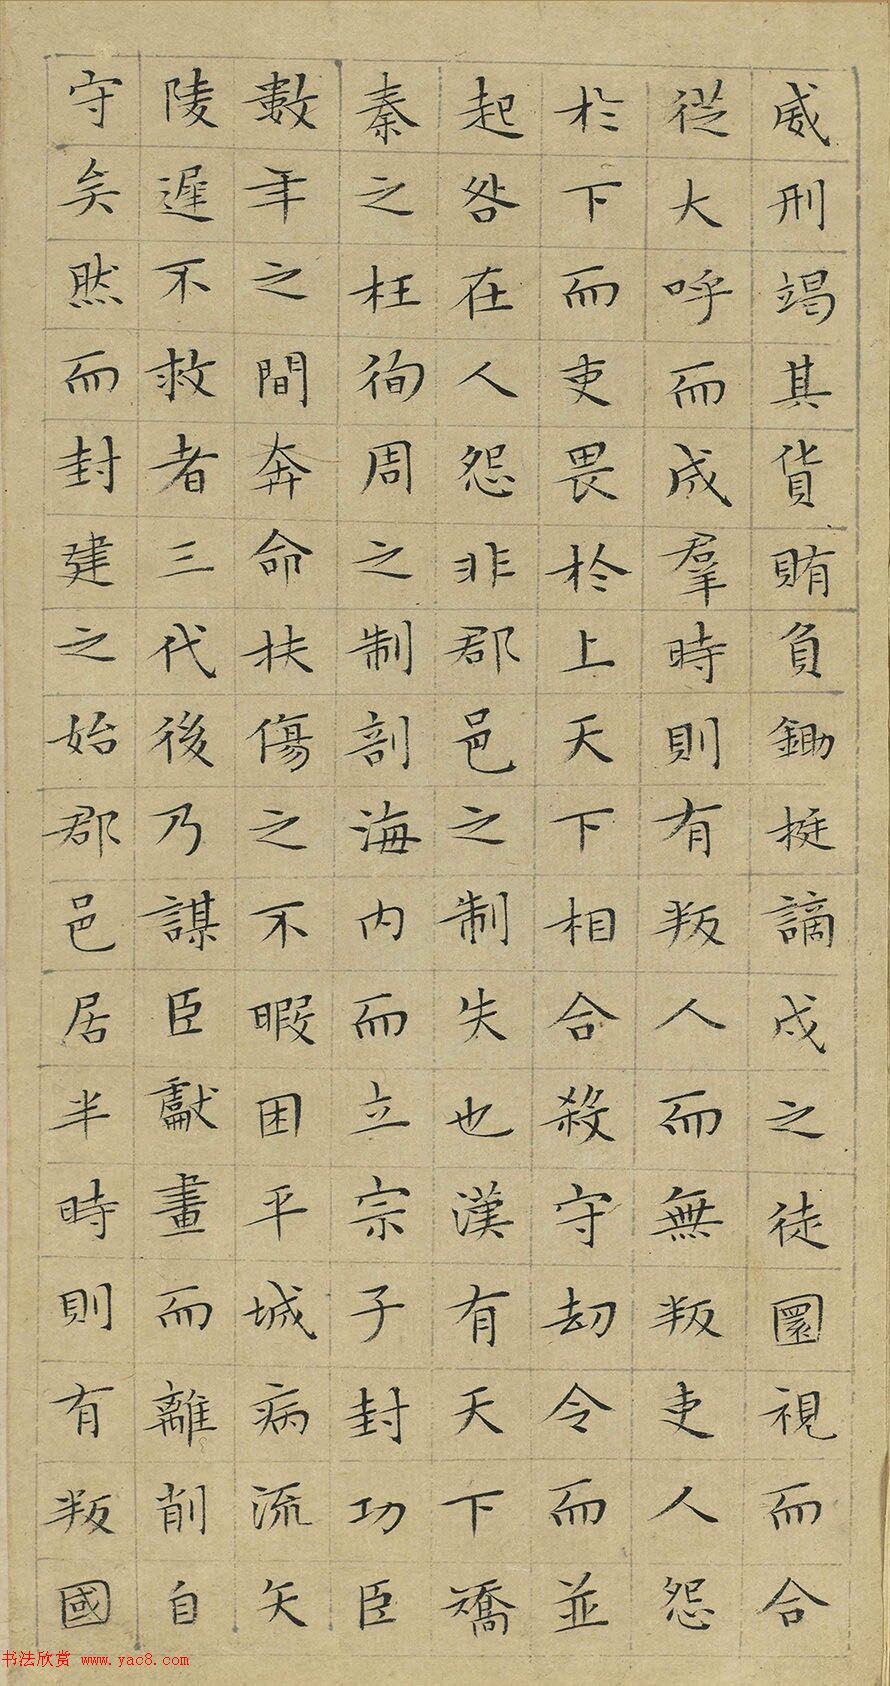 威刑竭其貨賄負鋤挺謫戍之徒圜視而合
從大呼而成羣時則有叛人而無叛吏人怨
於下而吏畏於上天下相合殺守刼令而並
起咎在人怨非郡邑之制失也漢有天下矯
秦之枉徇周之制剖海內而立宗子封功臣
數年之間奔命扶傷之不暇困平城病流矢
陵遲不救者三代後乃謀臣獻畫而離削自
守矣然而封建之始郡邑居半時則有叛國
书法欣赏 www.yac8.com